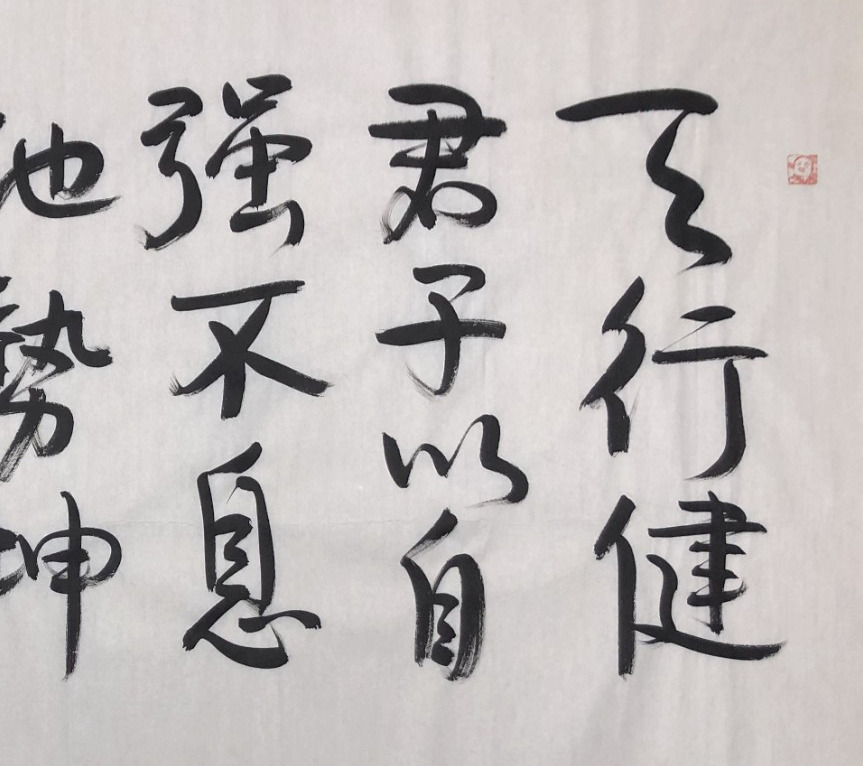 天行健
君子以自
强不息
地势坤